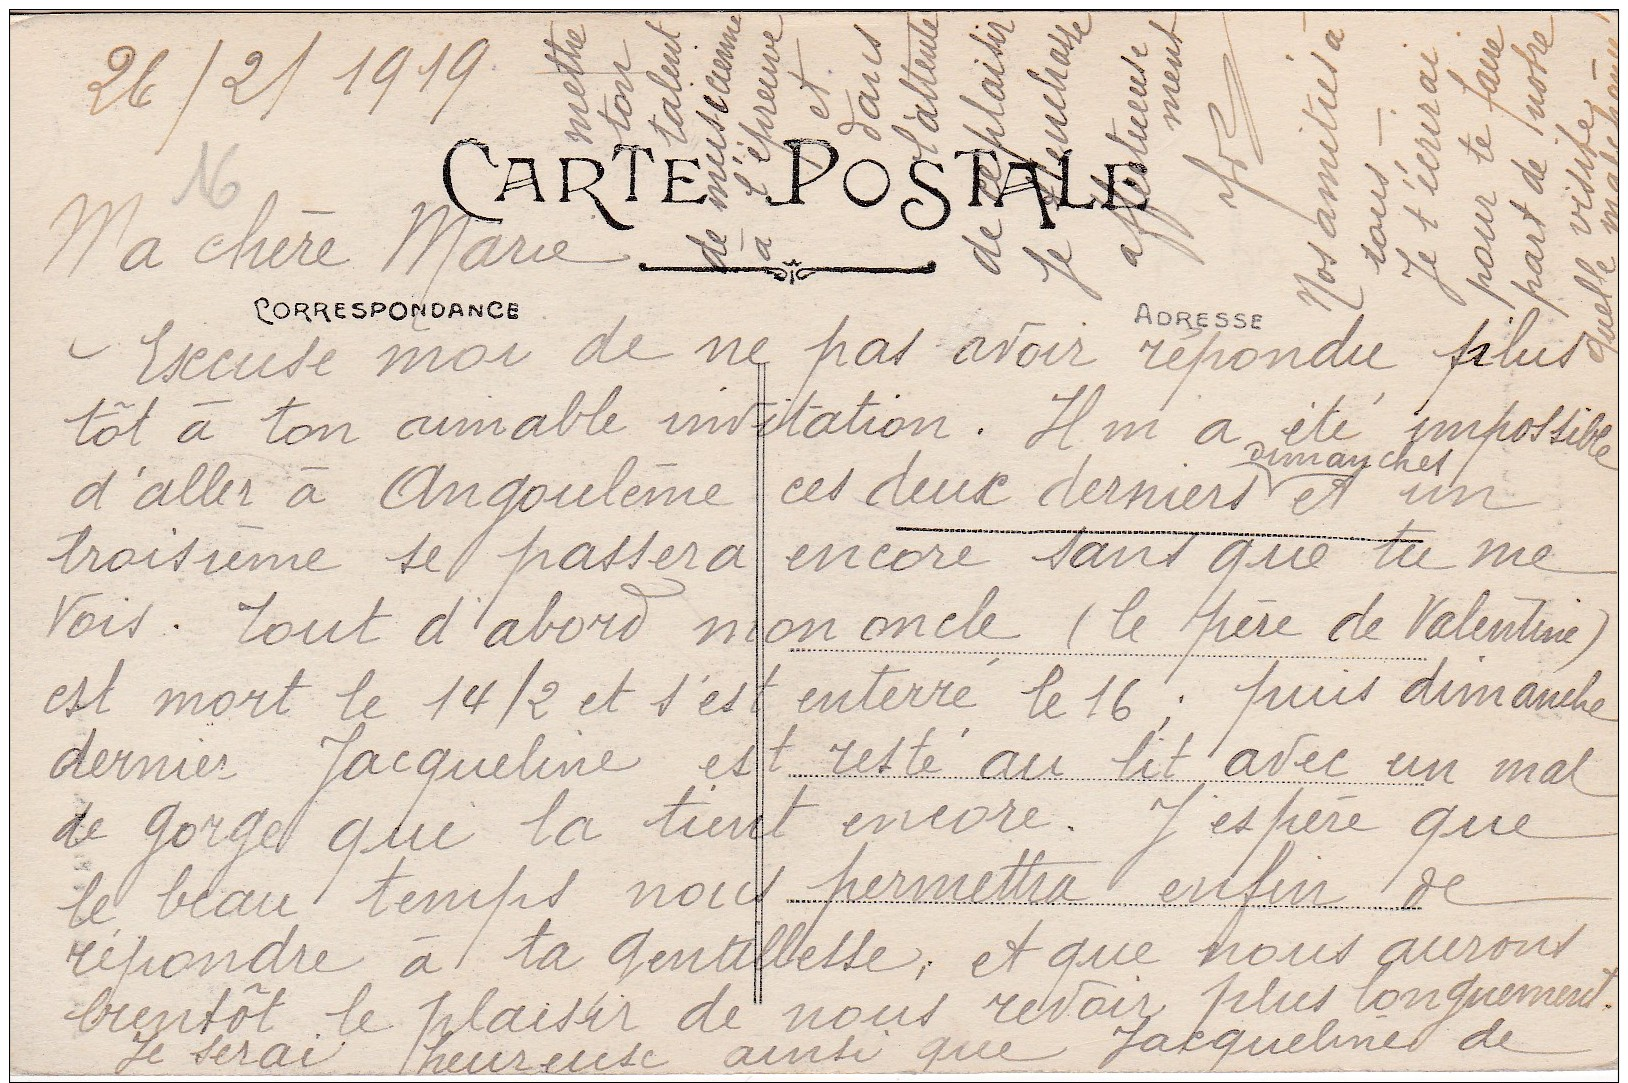 26/2/1919
N6
CARTE POSTALE
Ma chère Marie
CORRESPONDANCE
ADRESSE
Excuse moi de ne pas avoir répondu plus
tôt à ton aimable invitation. Il m a été impossible
d'aller à Angoulême ces deux derniers dimanches et un
troisième se passera encore sans que tu me
vois. Tout d'abord mon oncle (le père de Valentine)
est mort le 14/2 et s'est enterré le 16 ; puis dimanche
dernier Jacqueline est resté au lit avec un mal
de gorge qui la tient encore. J'espère que
le beau temps nous permettra enfin de
répondre à ta gentillesse, et que nous aurons
bientôt le plaisir de nous revoir plus longuement.
Je serai heureuse ainsi que Jacqueline de
mettre
ton
talent
de musicienne
à l'épreuve
et
dans
l'attente
de ce plaisir
Je t'embrasse
affectueuse
ment
Nos amitiés à
tous —
Je t'écrirai
pour te faire
part de notre
visite
quelle